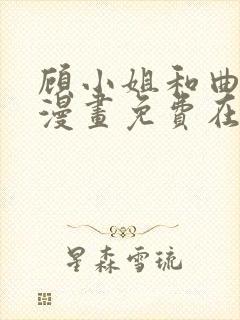 顾小姐和曲
漫畫免費在
星森雪琉